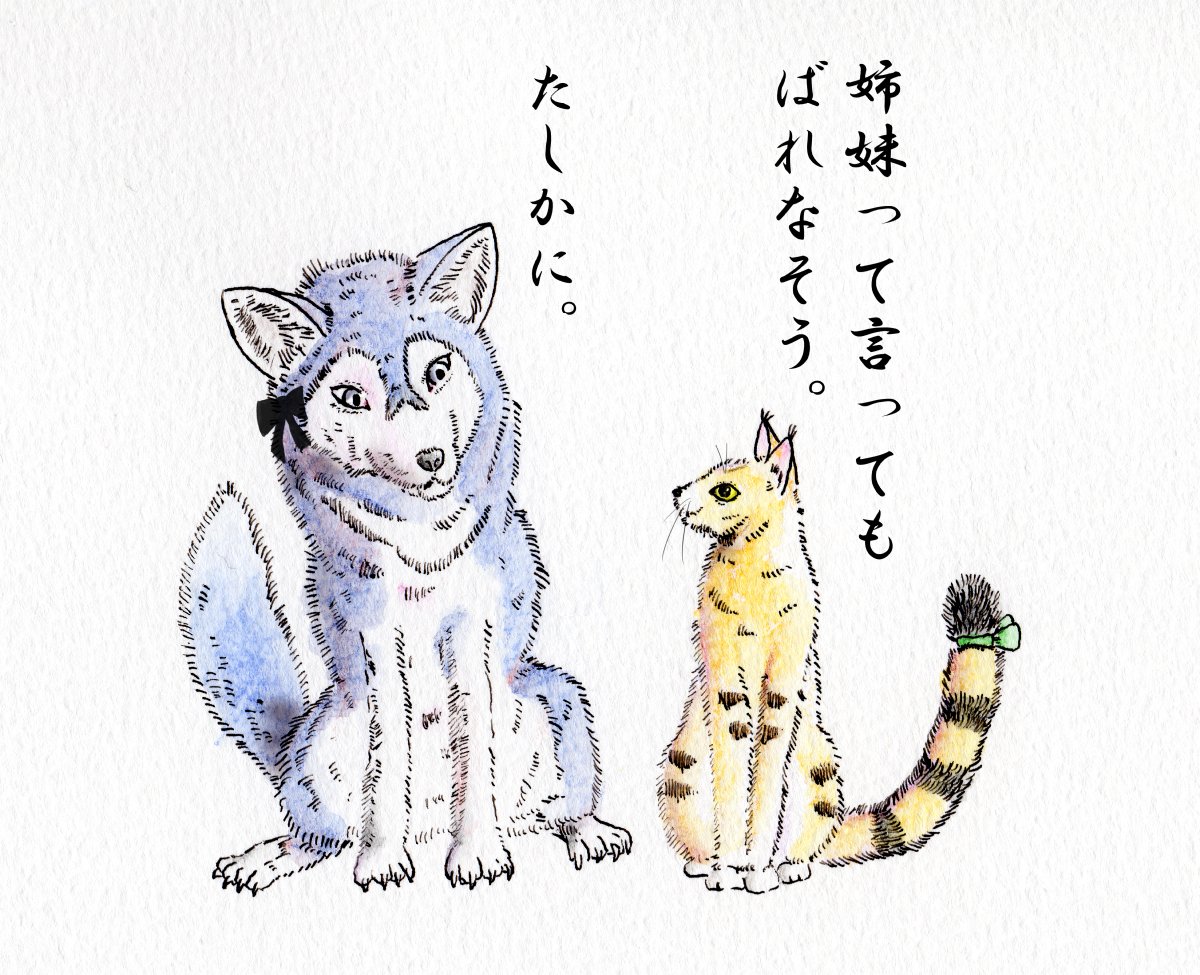 姉妹って言っても
ばれなそう。
たしかに。